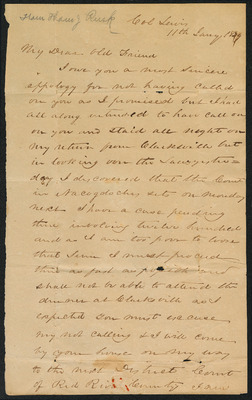 from Henry Rusk
Col Lewis
11th Jany 1839
My Dear Old Friend
I owe you a most sincere
appology for not having called
on you as I promised but I had
all along intended to have call on
on you and staid all night on
my return from Clarksvill but
in looking over the
day I discovered that the Court
in Nacogdoches sets on Monday
next I have a case pending
there involving twelve hundred
and as I am too poor to lose
that sum I must proceed
there as fast as possible and
shall not be able to attend the
dinner at Clarksvill as I
expected you must excuse
my not calling & I will come
by your house on my way
to the next District Court
of Red River County I am